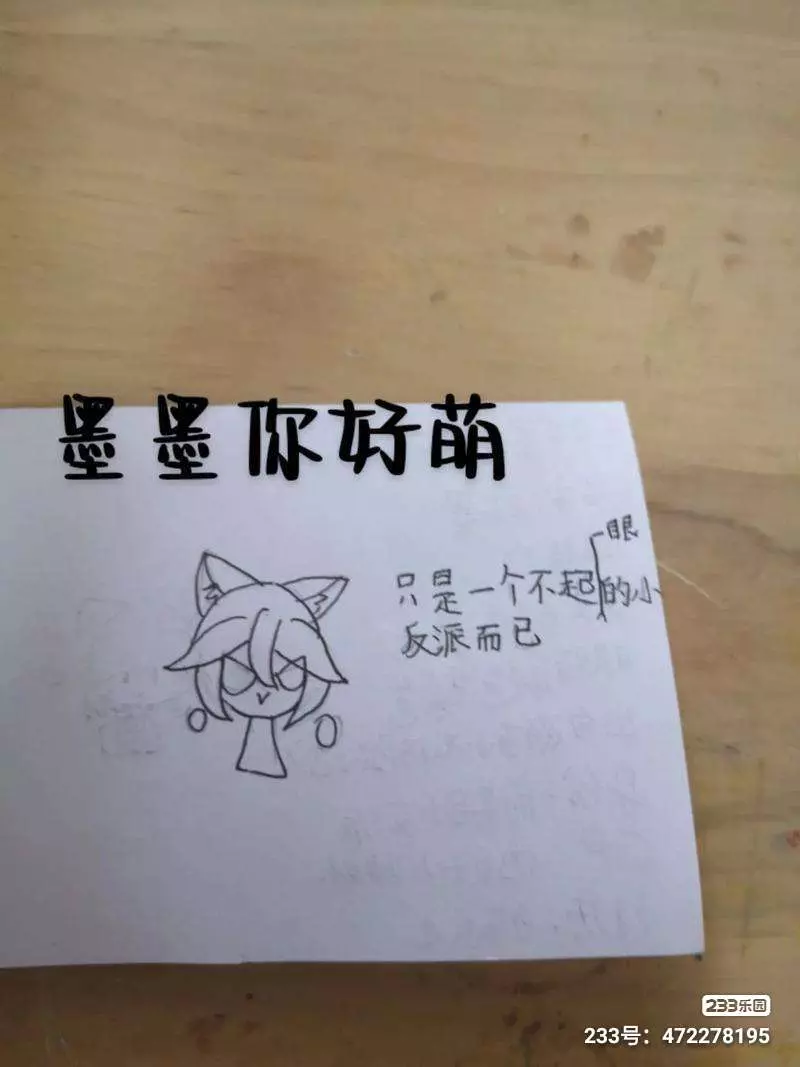 墨墨你好萌
眼
只是一个不起的小
反派而已
233乐园
233号：472278195